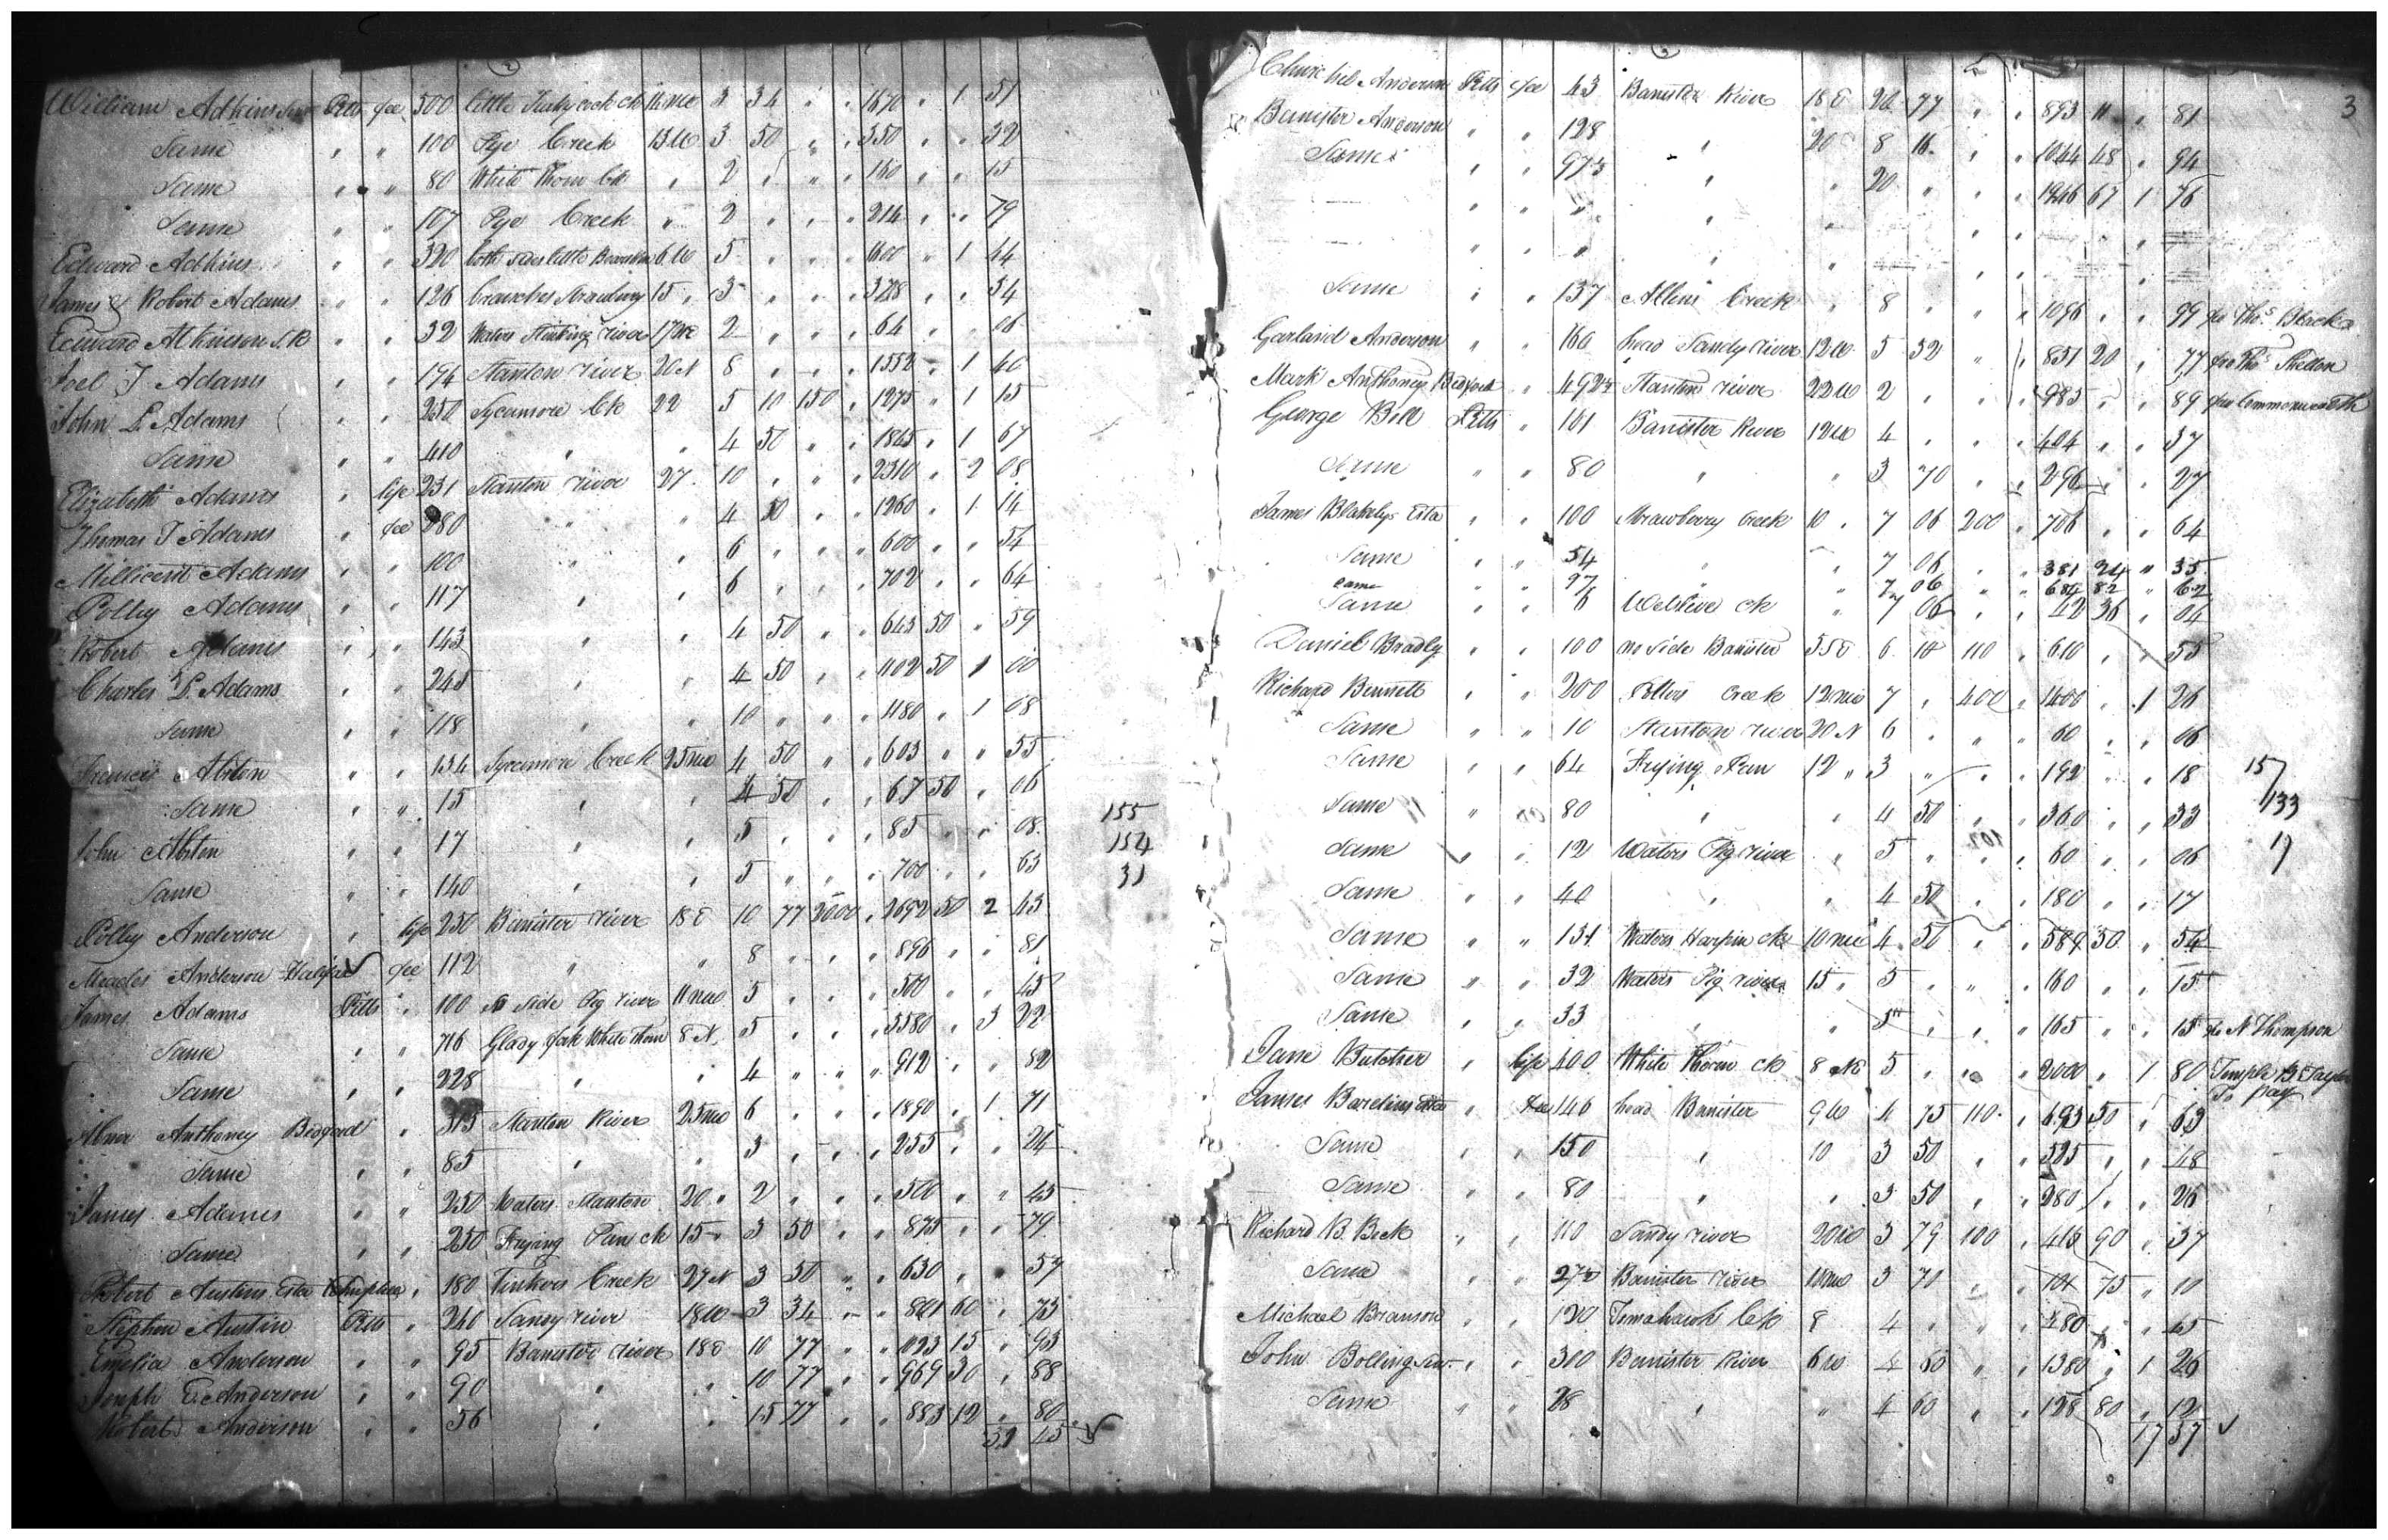 2
William Adkins Senr Pitts fee 500 little 16 NW 3 34 " " 1670 " 1 51
Same " " 100 Pye Creek 13 W 3 50 " " 350 " " 32
Same " " 80 White Thorn Ck " 2 " " " 160 " " 15
Same " " 107 Pye Creek " 2 " " " 214 " " 19
Edward Adkins " " 320 both sides little 6 W 5 " " " 1600 " 1 44
James & Robert Adams " " 126 branches Strawberry 15 " 3 " " " 378 " " 34
Edward Atkinson " " 32 Waters Stinking river 17 W 2 " " " 64 " " 06
Joel T Adams " " 194 Stanton river 20 N 8 " " " 1552 " 1 40
John L Adams " " 250 Sycamore Ck 22 5 10 150 " 1275 " 1 15
Same " " 410 " " 4 50 " " 1845 " 1 67
Elizabeth Adams " life 231 Stanton river 27 10 " " " 2310 " 2 08
Thomas T Adams " fee 280 " " 4 50 " " 1260 " 1 14
Millicent Adams " " 100 " " 6 " " " 600 " " 54
Polley Adams " " 117 " " 6 " " " 702 " " 64
Robert Adams " " 143 " " 4 50 " " 643 50 " 59
Charles L. Adams " " 245 " " 4 50 " " 1102 50 1 00
Same " " 118 " " 10 " " " 1180 " 1 08
Francis Abston " " 134 Sycamore Creek 25 NW 4 50 " " 603 " " 55
Same " " 15 " " 4 50 " " 67 50 " 06
John Abston " " 17 " " 5 " " " 85 " " 08
Same " " 140 " " 5 " " " 700 " " 63
155
154
31
Polley Anderson " life 250 Banister river 18 E 10 77 2000 " 2692 50 2 43
Meades Anderson Halifax fee 112 " " 8 " " " 896 " " 81
James Adams Pitts " 100 N side Pig river 11 NW 5 " " " 500 " " 45
Same " " 716 Glady fork White thorn 8 N 5 " " " 3580 " 3 22
Same " " 228 " " 4 " " " 912 " " 82
Abner Anthoney Bedford " 315 Stanton River 25 NW 6 " " " 1890 " 1 71
Same " " 85 " " 3 " " " 255 " " 24
James Adams " " 250 Waters Stanton 20 " 2 " " " 500 " " 45
Same " " 250 Frying Pan ck 15 " 3 50 " " 875 " " 79
Robert Austins Esta " 180 Tinkers Creek 27 N 3 50 " " 630 " " 57
Stephen Austin Pitts " 240 Sandy river 18 W 3 34 " " 801 60 " 73
Emelia Anderson " " 95 Banister river 18 E 10 77 " " 1023 15 " 93
Joseph E. Anderson " " 90 " " 10 77 " " 969 30 " 88
Robert Anderson " " 56 " " 15 77 " " 883 12 " 80
3
3
Churchel Anderson Pitts fee 43 Banister River 18 E 20 77 " " 893 11 " 81
Banister Anderson " " 128 " 20 8 16 " " 1044 48 " 94
Same " " 97 1/3 " " 20 " " " 1946 67 1 76
Same " " 137 Allens Creek " 8 " " " 1096 " " 99 fro Thos. Black
Garland Anderson " " 160 head Sandy river 12 W 5 32 " " 851 20 " 77 fro Thos Shelton
Mark Anthoney Bedford " 492 1/2 Stanton river 22 W 2 " " " 985 " " 89 fro Commonwealth
George Bell Pitts " 101 Banister River 12 W 4 " " " 404 " " 37
Same " " 80 " " 3 70 " " 296 " " 27
James Blakelys Esta " " 100 Strawberry Creek 10 " 7 06 200 " 706 " " 64
Same " " 54 " " 7 06 " " 381 24 " 35
same 97 " 7 06 " " 684 82 " 62
Same " " 6 ck " 7 06 " " 42 36 " 04
Daniel Bradly " " 100 No side Banister 5 SE 6 10 110 " 610 " " 55
Richard Bennett " " 200 Potters Creek 12 NW 7 " 400 " 1400 " 1 26
Same " " 10 Stanton river 20 N 6 " " " 60 " " 06
Same " " 64 Frying Pan 12 " 3 " " " 192 " " 18
15
133
Same " " 80 " " 4 50 " " 360 " " 33
17
Same " " 12 Waters Pig river " 5 " " " 60 " " 06
Same " " 40 " " 4 50 " " 180 " " 17
Same " " 131 Waters Harpin ck 10 NW 4 50 " " 589 50 " 54
Same " " 32 Waters Pig river 15 " 5 " " " 160 " " 15
Same " " 33 " " 5 " " " 165 " " 15 fro N Thompson
Jane Butcher " life 400 White Thorn ck 8 N 5 " " " 2000 " 1 80 Temple B Taylor
To pay
James Esta " fee 146 head Banister 9 W 4 75 110 " 693 50 " 63
Same " " 150 " 10 3 50 " " 525 " " 48
Same " " 80 " " 3 50 " " 280 " " 26
Richard B. Beck " " 110 Sandy river 20 W 3 79 100 " 415 90 " 37
Same " " 27 1/2 Banister river 11 NW 3 71 " " 101 75 " 10
Michael Branson " " 120 Tomahawk Ck 8 4 " " " 480 " " 45
John Bolling Senr. " " 300 Banister River 6 W 4 60 " " 1380 " 1 26
Same " " 28 " " 4 60 " " 128 80 " 12
17 37